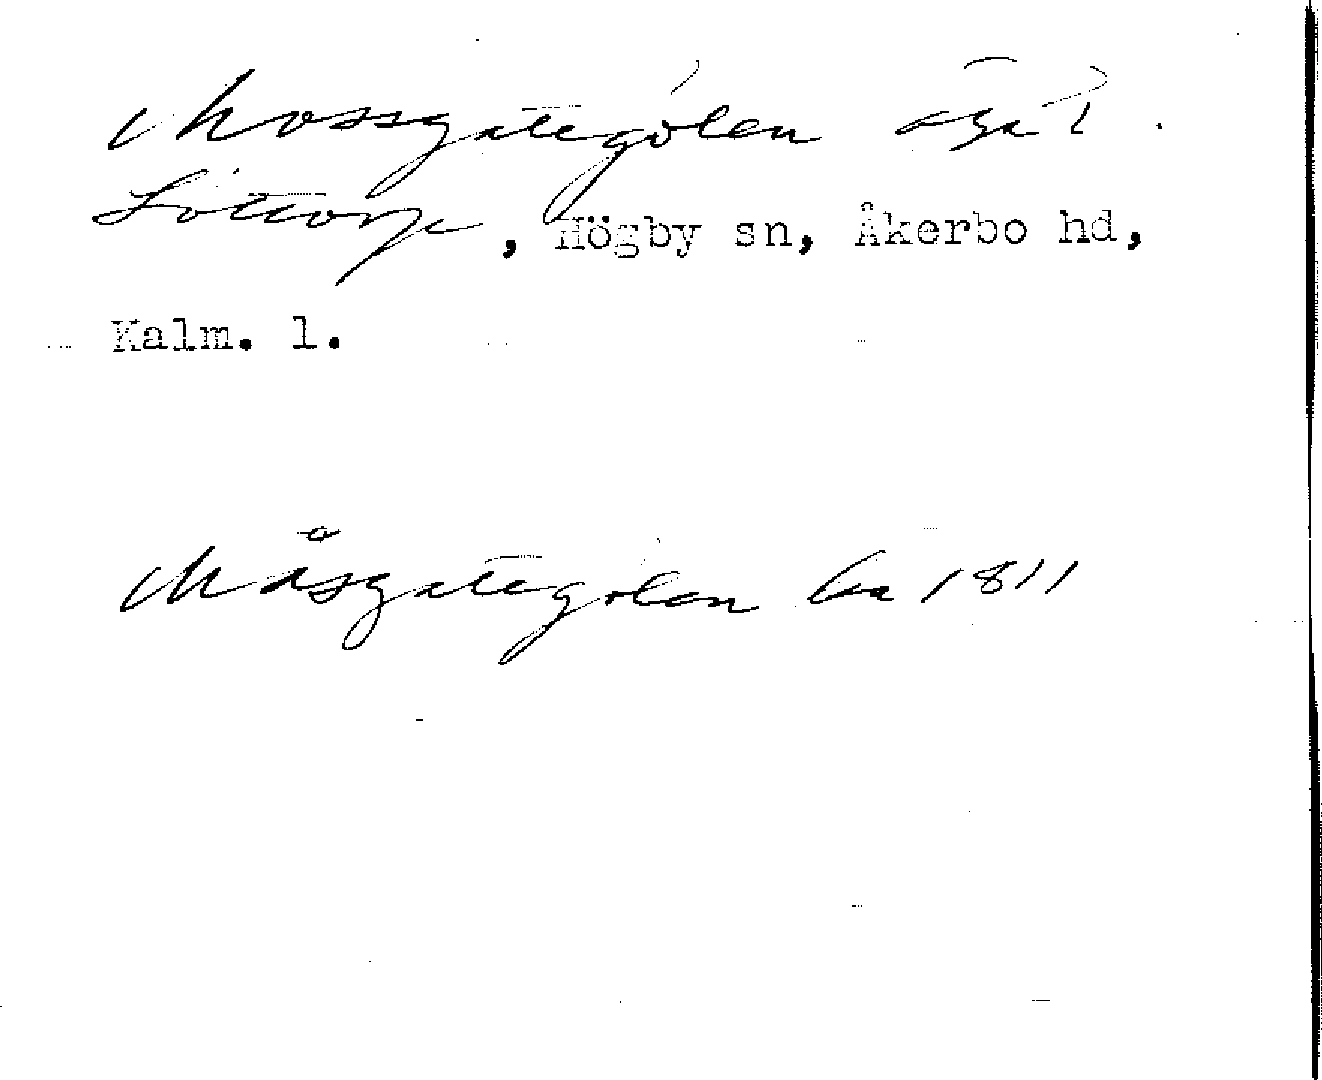 Mossgategölen
Löttorp, Högby sn, Åkerbo hd,
Kalm. l.
Måsgategölen ha 1811